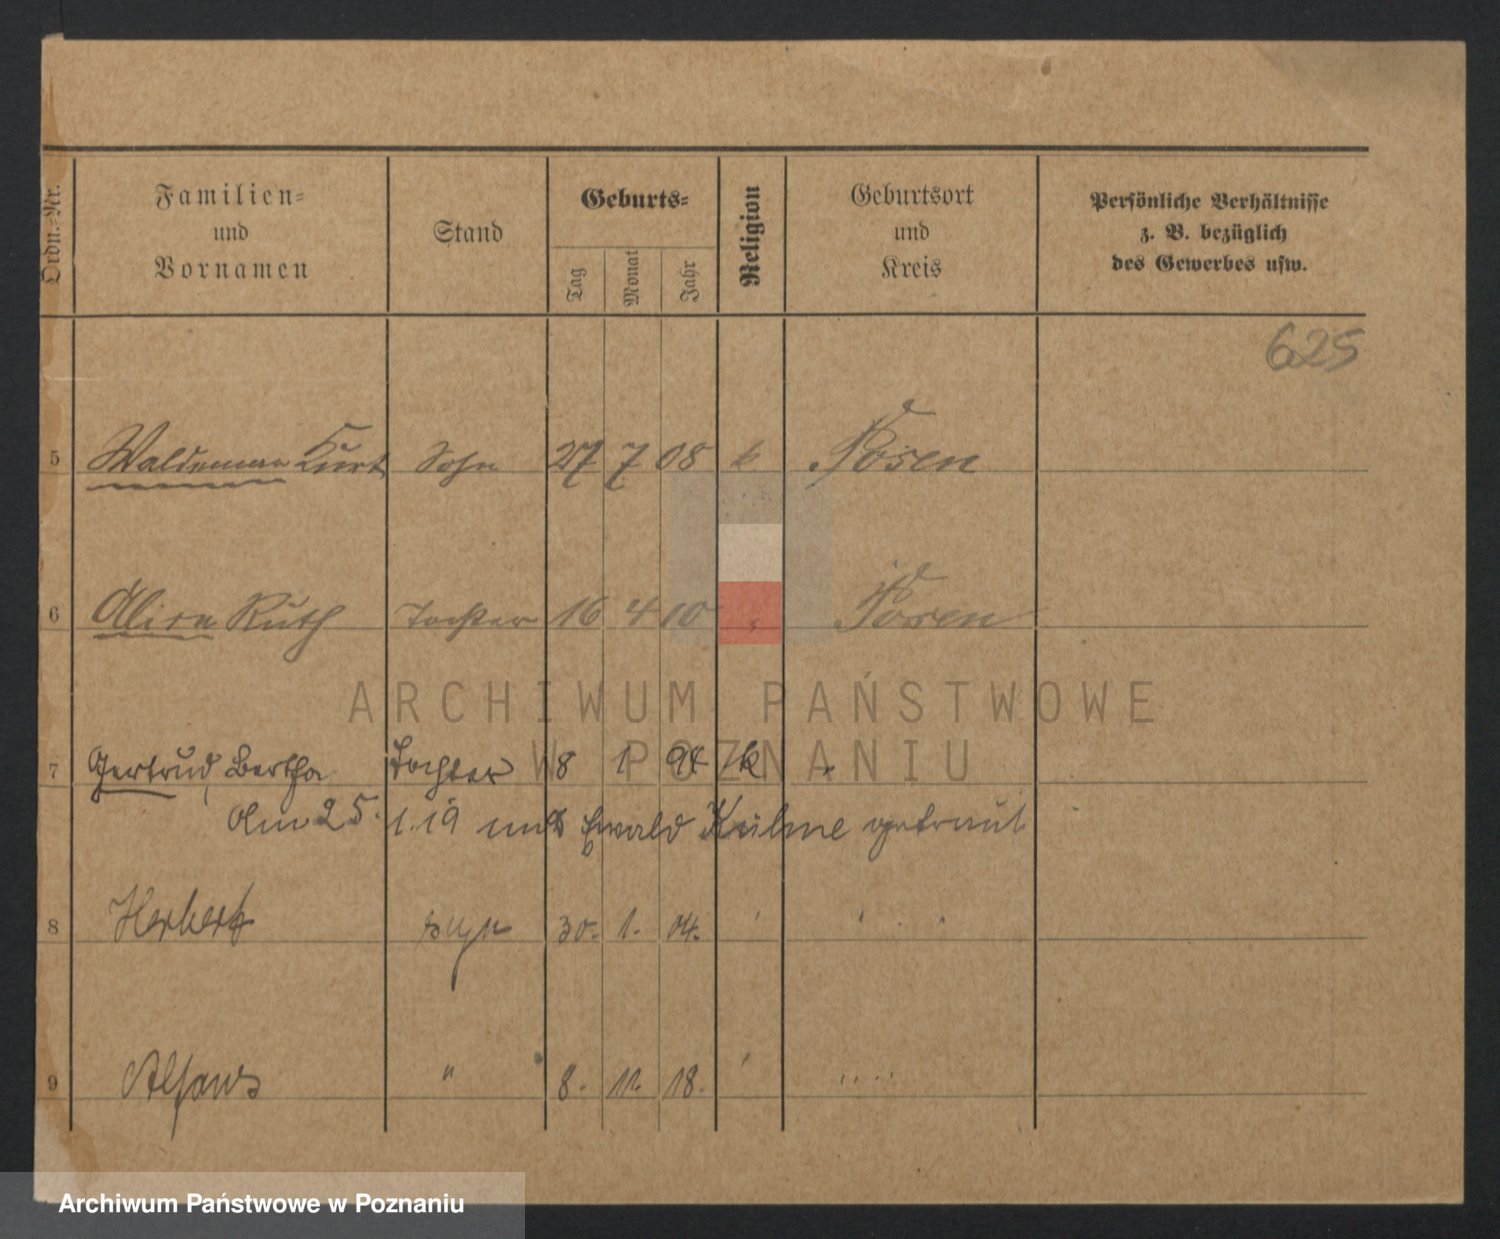 Ordn.-Nr. Familien- und Vornamen Stand Geburts- Tag Monat Jahr Religion Geburtsort und Kreis Persönliche Verhältnisse z. B. bezüglich des Gewerbes usw.
625
5 Waldemar Kurt Sohn 27 7 08 k Posen
6 Ruth Tochter 16 4 10 " Posen
ARCHIWUM PAŃSTWOWE
W POZNANIU
7 Gertrud, Bertha Tochter 8 1 k "
Am 25. 1. 19 mit Ewald getraut
8 Herbert Sohn 30. 1. 04. " " "
9 Alfons " 8. 11. 18. " " "
Archiwum Państwowe w Poznaniu